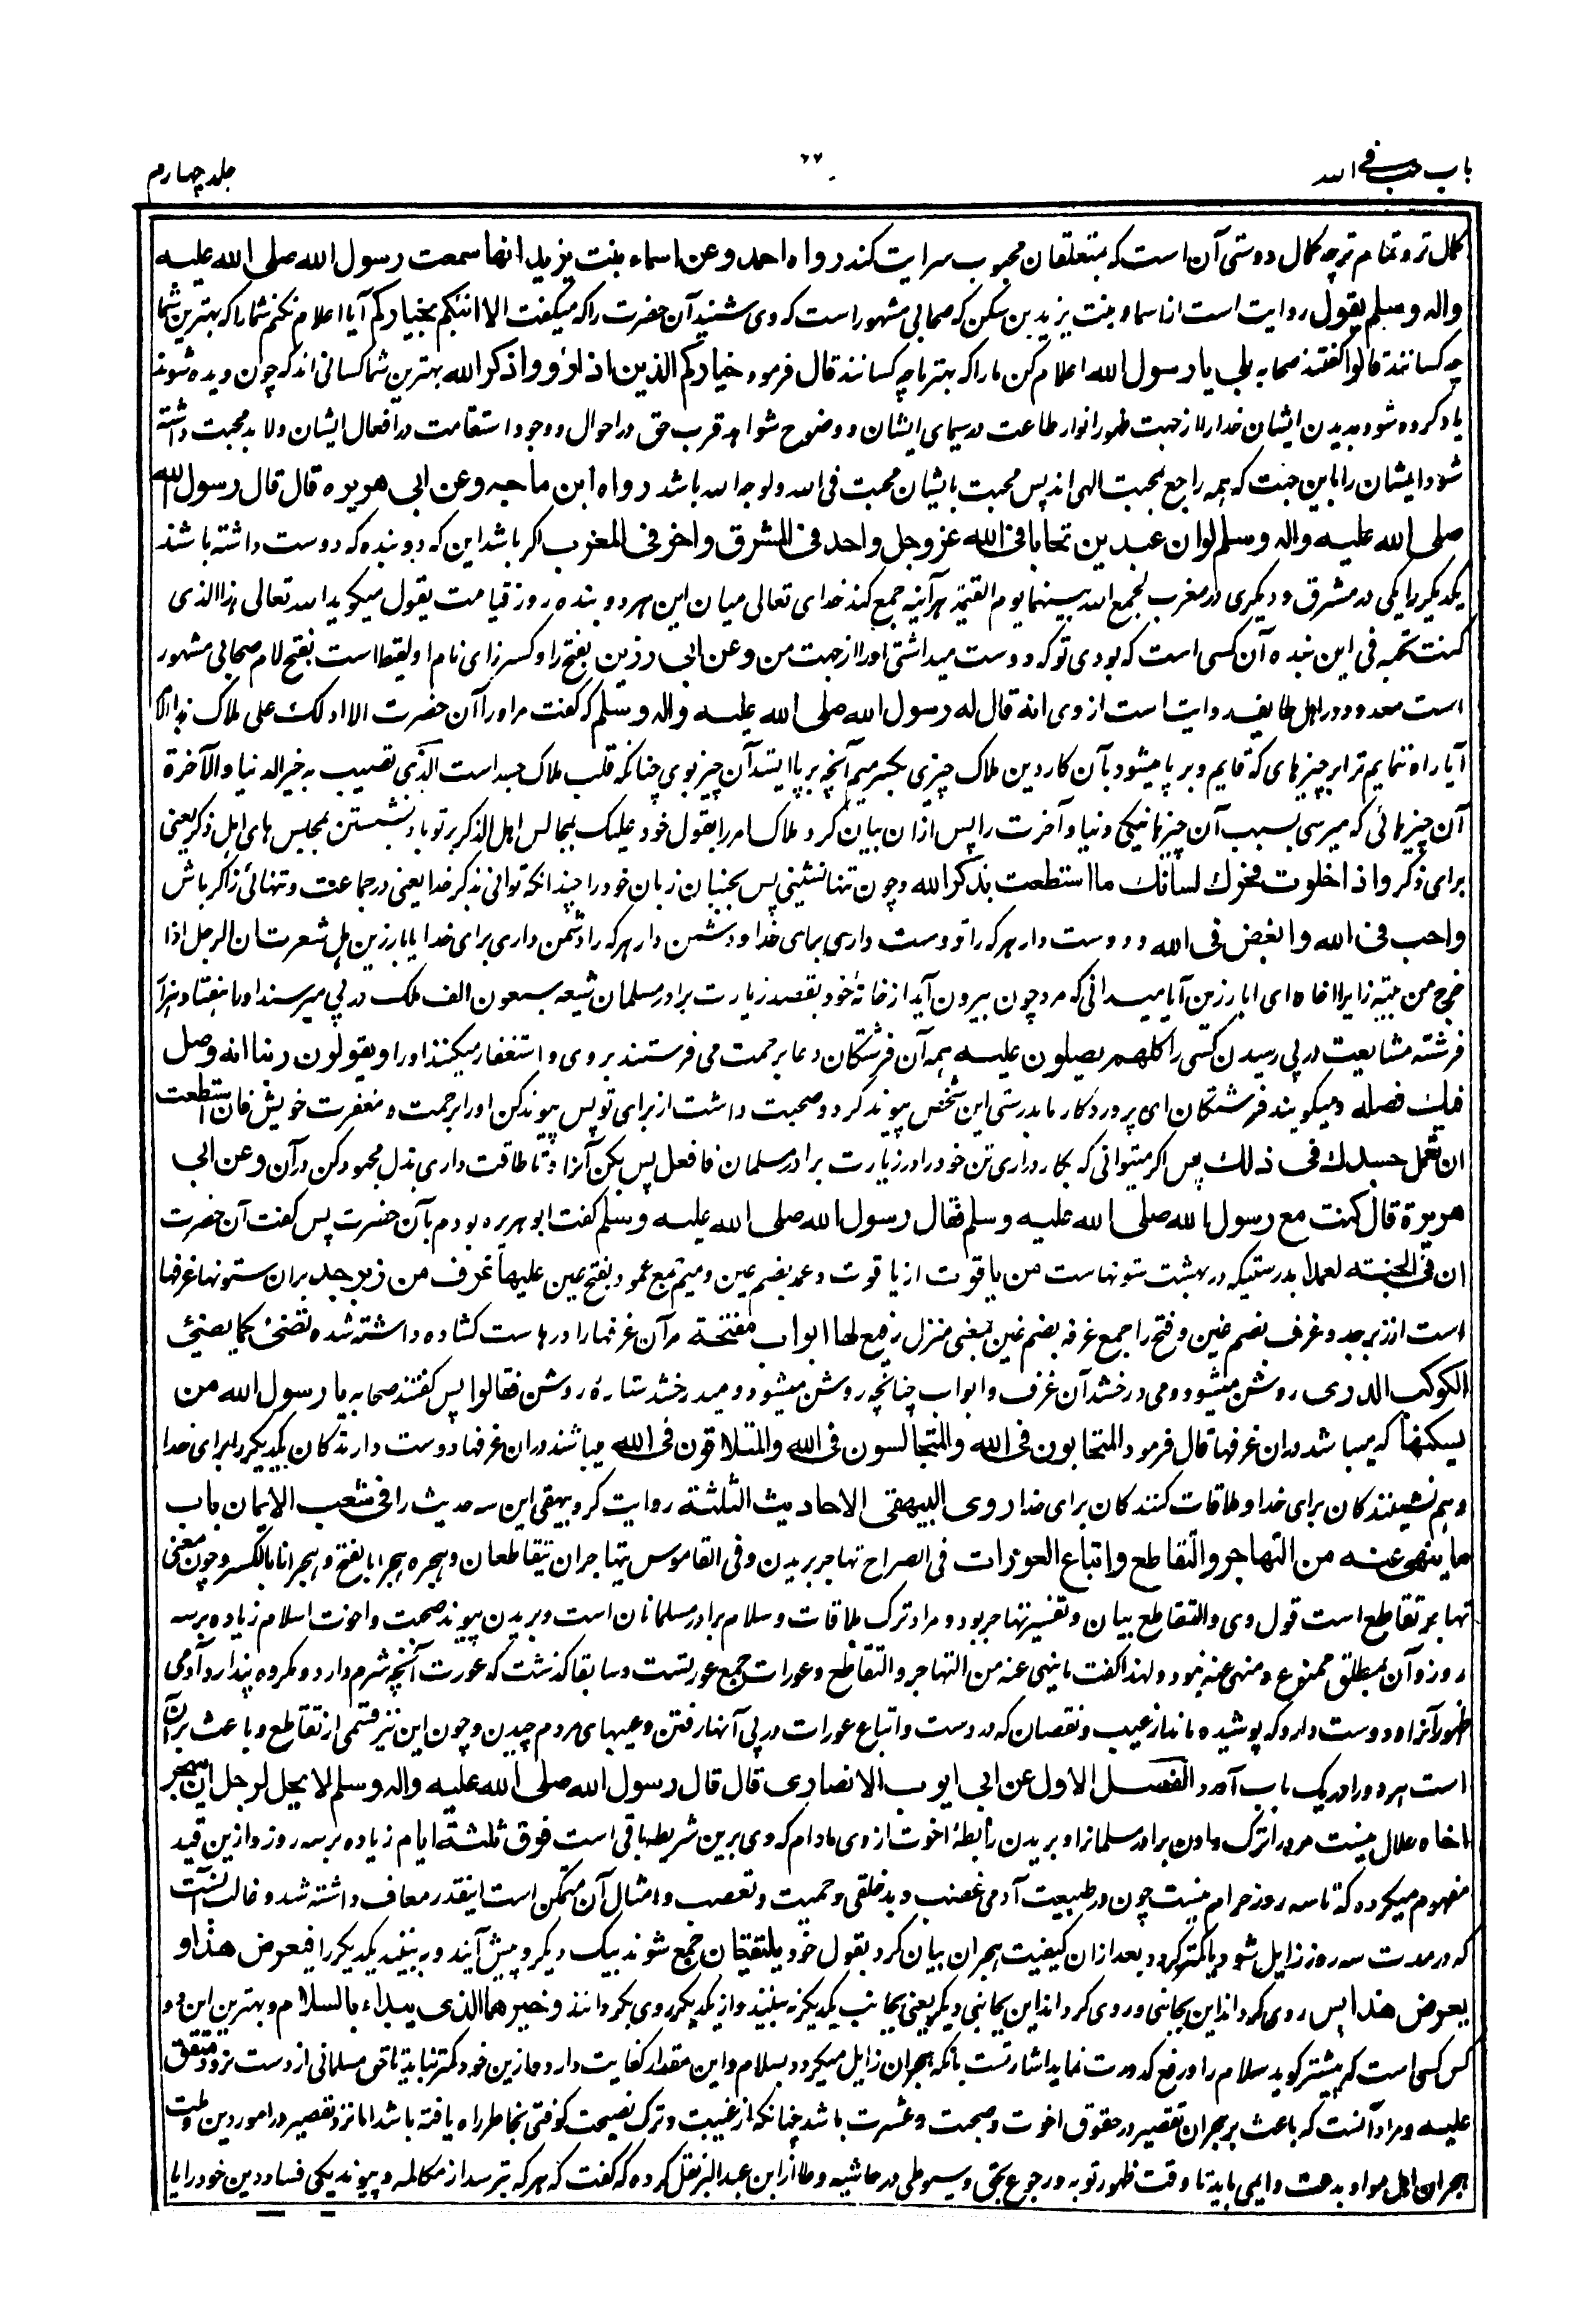 باب حب فی الله
جلد چهارم
کمال تر و تمام تر چه کمال دوستی آن است که بمتعلقان محبوب سرایت کند رواه احمد وعن اسماء بنت یزید انها سمعت رسول الله صلی الله علیه
واله وسلم یقول روایت است از اسماء بنت یزید بن سکن که صحابی مشهور است که وی شنید آن حضرت را که میگفت الا انبئکم بخیارکم آیا اعلام نکنم شما را که بهترین شما
چه کسانند قالوا گفتند صحابه بلی یا رسول الله اعلام کن ما را که بهتر ما چه کسانند قال فرمود خیارکم الذین اذا رؤو اذکر الله بهترین شما کسانی اند که چون دیده شوند
یاد کرده شود بدیدن ایشان خدا را از جهت ظهور انوار طاعت در سیمای ایشان و وضوح شواهد قرب حق در احوال و وجود استقامت در افعال ایشان و لابد محبت داشته
شود ایشان را باین جهت که همه راجع بمحبت الهی اند پس محبت بایشان محبت فی الله و لوجه الله باشد رواه ابن ماجه وعن ابی هریره قال قال رسول الله
صلی الله علیه واله وسلم لو ان عبدین تحابا فی الله عز وجل واحد فی المشرق واخر فی المغرب اگر باشد این که دو بنده که دوست داشته باشند
یکدیگر را یکی در مشرق و دیگری در مغرب لجمع الله بینهما یوم القیمة هر آینه جمع کند خدای تعالی میان این هر دو بنده روز قیامت یقول میگوید الله تعالی هذا الذی
کنت تحبه فی این بنده آن کسی است که بودی تو که دوست میداشتی او را از جهت من وعن ابی رزین بفتح را و کسر زای نام او لقیط است بفتح لام صحابی مشهور
است معدود در اهل طایف روایت است از وی انه قال له رسول الله صلی الله علیه واله وسلم که گفت مر او را آن حضرت الا ادلک علی ملاک هذا الامر
آیا راه ننمایم ترا بر چیزهای که قایم و بر پا میشود بآن کار دین ملاک چیزی بکسر میم آنچه بر پا ایستد آن چیز بوی چنانکه قلب ملاک جسد است الذی تصیب به خیر الدنیا والآخرة
آن چیزهائی که میرسی بسبب آن چیزها نیکی دنیا و آخرت را پس ازان بیان کرد ملاک امر را بقول خود علیک بمجالس اهل الذکر بر تو باد نشستن بمجلس های اهل ذکر یعنی
برای ذکر واذا خلوت فحرك لسانك ما استطعت بذکر الله و چون تنها نشینی پس بجنبان زبان خود را چندانکه توانی بذکر خدا یعنی در جماعت و تنهائی ذاکر باش
واحب فی الله وابغض فی الله و دوست دار هر که را دوست داری برای خدا و دشمن دار هر که را دشمن داری برای خدا یا ابا رزین هل شعرت ان الرجل اذا
خرج من بیته زایرا اخاه ای ابا رزین آیا میدانی که مرد چون بیرون آید از خانهٔ خود بقصد زیارت برادر مسلمان شیعه سبعون الف ملک در پی میرسند او را هفتاد هزار
فرشته مشایعت در پی رسیدن کسی را کلهم یصلون علیه همه آن فرشتگان دعا برحمت می فرستند بر وی و استغفار میکنند او را ویقولون ربنا انه وصل
فیك فصله و میگویند فرشتگان ای پروردگار ما بدرستی این شخص پیوند کرد و صحبت داشت از برای تو پس پیوند کن او را برحمت و مغفرت خویش فان استطعت
ان تعمل جسدك فی ذلك پس اگر میتوانی که بکار داری تن خود را در زیارت برادر مسلمان فافعل پس بکن آنرا و تا طاقت داری بذل مجهود کن در آن وعن ابی
هریرة قال کنت مع رسول الله صلی الله علیه وسلم فقال رسول الله صلی الله علیه وسلم گفت ابو هریره بودم بآن حضرت پس گفت آن حضرت
ان فی الجنته لعمدا بدرستیکه در بهشت ستونهاست من یاقوت از یاقوت و عمد بضم عین و میم جمع عمود بفتح عین علیها غرف من زبرجد بران ستونها غرفها
است از زبرجد و غرف بضم غین و فتح را جمع غرفه بضم غین بمعنی منزل رفیع لها ابواب مفتحة مر آن غرفها را درهاست کشاده داشته شده تضئ کما یضئ
الکوکب الدری روشن میشود و می درخشد آن غرف و ابواب چنانچه روشن میشود و میدرخشد ستارهٔ روشن فقالوا پس گفتند صحابه یا رسول الله من
یسکنها که میباشد دران غرفها قال فرمود المتحابون فی الله والمتجالسون فی الله والمتلاقون فی الله میباشند دران غرفها دوست دارندگان یکدیگر را برای خدا
و هم نشینندگان برای خدا و ملاقات کنندگان برای خدا روی البیهقی الاحادیث الثلثة روایت کرد بیهقی این سه حدیث را فی شعب الایمان باب
ما ینهی عنه من التهاجر والتقاطع واتباع العورات فی الصراح تهاجر بریدن و فی القاموس یتهاجران یتقاطعان و هجره هجرا بالفتح و هجرانا بالکسر و چون معنی
تهاجر تقاطع است قول وی والتقاطع بیان و تفسیر تهاجر بود و مراد ترک ملاقات و سلام برادر مسلمانان است و بریدن پیوند صحبت و اخوت اسلام زیاده بر سه
روز و آن بمطلق ممنوع و منهی عنه نبود و لهذا گفت ما ینهی عنه من التهاجر و التقاطع و عورات جمع عورتست و سابقا گذشت که عورت آنچه شرم دارد و مکروه پندارد آدمی
ظهور آنرا و دوست دارد که پوشیده ماند از عیب و نقصان که در دست و اتباع عورات در پی آنها رفتن و عیبهای مردم چیدن و چون این نیز قسمی از تقاطع و باعث بران
است هر دو را در یک باب آورد الفصل الاول عن ابی ایوب الانصاری قال قال رسول الله صلی الله علیه واله وسلم لا یحل لرجل ان یهجر
اخاه حلال نیست مرد را ترک دادن برادر مسلمانرا و بریدن رابطهٔ اخوت از وی مادام که وی برین شریطه باقی است فوق ثلثة ایام زیاده بر سه روز و ازین قید
مفهوم میگردد که تا سه روز حرام نیست چون در طبیعت آدمی غضب و بد خلقی و حمیت و تعصب و امثال آن متمکن است اینقدر معاف داشته شد و غالب آنست
که در مدت سه روز زایل شود یا کمتر گردد بعد ازان کیفیت هجران بیان کرد بقول خود یلتقیان جمع شوند بیک دیگر و پیش آیند و به بینند یکدیگر را فیعرض هذا و
یعرض هذا پس روی گرداند این بجانبی و روی گرداند این بجانبی دیگر یعنی بجانب یکدیگر نه بینند و از یکدیگر روی بگردانند وخیرهما الذی یبداء بالسلام و بهترین این دو
کس کسی است که پیشتر گوید سلام را و رفع کدورت نماید اشارتست بآنکه هجران زایل میگردد بسلام و این مقدار کفایت دارد و ازین خود کمتر نباید تا حق مسلمانی از دست نرود متفق
علیه و مراد آنست که باعث بر هجران تقصیر در حقوق اخوت و صحبت و عشرت باشد چنانکه از غیبت و ترک نصیحت کوفتی بخاطر راه یافته باشد اما نزد تقصیر در امور دین و ملت
هجران اهل هوا و بدعت دایمی باید تا وقت ظهور توبه و رجوع بحق و سیوطی در حاشیه موطا از ابن عبد البر نقل کرده که گفت که هر که بترسد از مکالمه و پیوند یکی فساد دین خود را یا